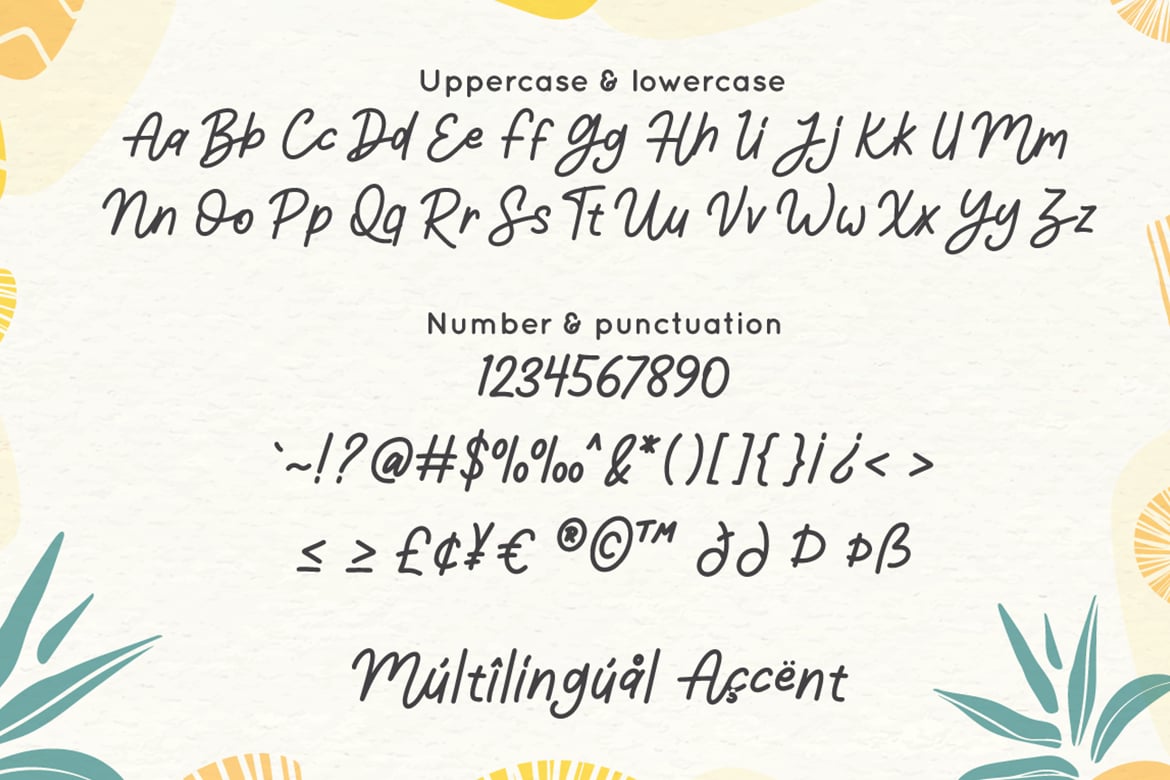 Uppercase & lowercase
Aa Bb Cc Dd Ee Ff Gg Hh Ii Jj Kk Ll Mm
Nn Oo Pp Qq Rr Ss Tt Uu Vv Ww Xx Yy Zz
Number & punctuation
1234567890
`~!?@#$%‰^&*()[]{}¡¿< >
≤ ≥ £¢¥€ ®©™ ð∂ Đ Þß
Múltîlíngúål Açcënt